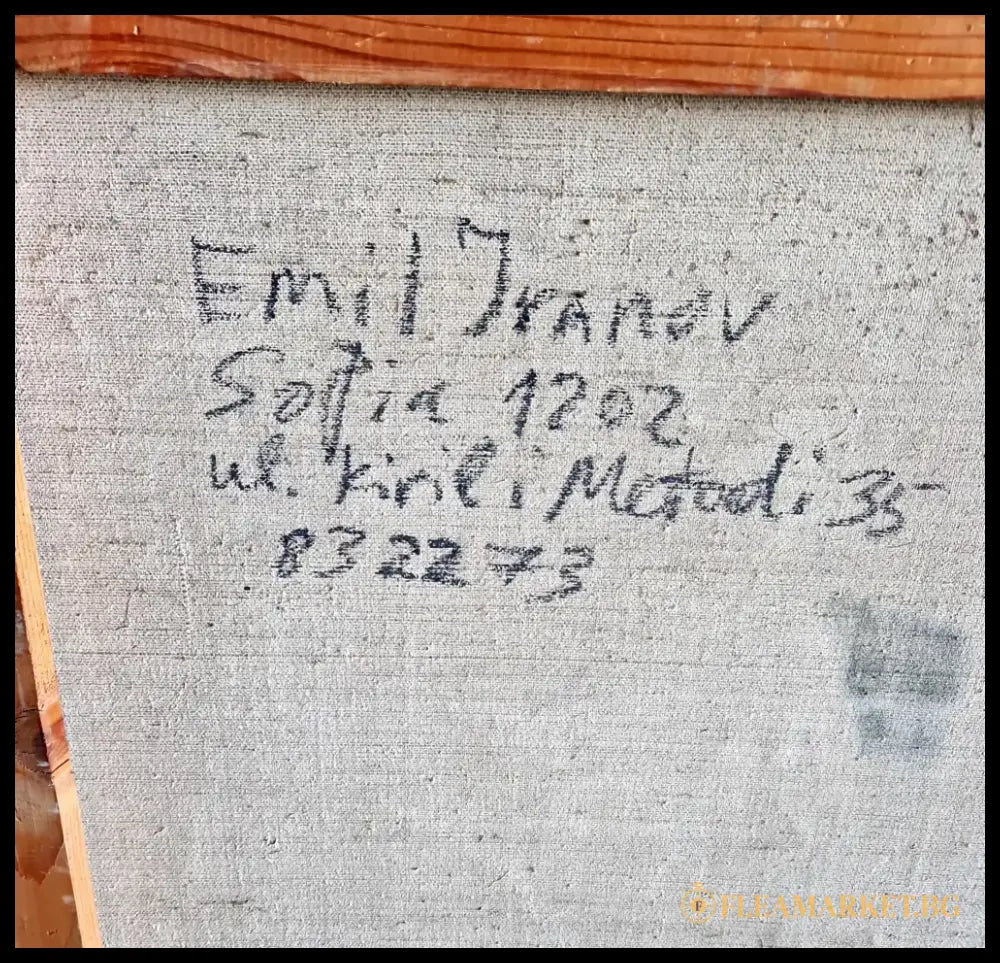 Emil Ivanov
Sofia 1202
ul. Kiril i Metodi 35
832273
FLEAMARKET.BG